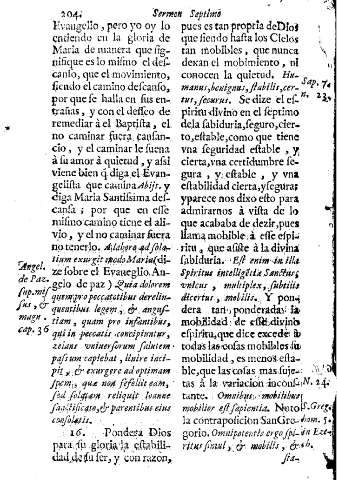 204. Sermon Septimo
Evangelio, pero yo oy lo
entiendo en la gloria de
Maria de manera que sig-
nifique es lo mismo el des-
canso, que el movimiento,
siendo el camino descanso,
por que se halla en sus en-
trañas, y con el desseo de
remediar à el Baptista, el
no caminar fuera cansan-
cio, y el caminar le fuena
à su amor à quietud, y assi
viene bien q̃ diga el Evan-
gelista que camina Abijt. y
diga Maria Santissima des-
cansa; por que en esse
mismo camino tiene el ali-
vio, y el no caminar fuera
no tenerlo. Ad laborẽ ad sola-
tium exurgit modo Maria (di-
ze sobre el Evangelio. An-
gelo de paz) Quia dolorem
quem pro peccatoribus derelin-
quentibus legem, & angus-
tiam, quam pro infantibus,
qui in peccatis concipiuntur,
zelans vniversorum salutem
passum capiebat, lluire inci-
pit, & exurgere ad optimam
spem, quæ non fefellit eam,
sed solatium reliquit Ioanne
sanctificato, & parentibus eius
consolatis.
16. Pondera Dios
para su gloria la estabili-
dad de su ser, y con razon,
Angel.
de Paz.
sup. mis-
sus, &
magn.
cap. 36
pues es tan propria de Dios
que siendo hasta los Cielos
tan mobibles, que nunca
dexan el mobimiento, ni
conocen la quietud. Hu-
manus, benignus, stabilis, cer-
tus, securus. Se dize el es-
piritu divino en el septimo
de la sabiduria, seguro, cier-
to, estable, como que tiene
vna seguridad estable, y
cierta, vna certidumbre se-
gura, y estable, y vna
estabilidad cierta, y segura;
y parece nos dixo esto para
admirarnos à vista de lo
que acababa de dezir, pues
llama mobible à esse espi-
ritu, que asiste à la divina
sabiduria. Est enim in illa
Spiritus intelligẽtiæ Sanctus,
vnicus, multiplex, subtilis
disertus, mobilis. Y pon-
dera tan ponderada la
mobilidad de esse divino
espiritu, que dice excede à
todas las cosas mobibles su
mobilidad, es menos esta-
ble, que las cosas mas suje-
tas à la variacion incons-
tante. Omnibus mobilibus
mobilior est sapientia. Notó
la contraposicion San Gre-
gorio. Omnipotentis ergo spi-
ritus simul, & mobilis, &
sta-
Sap. 7.
n. 23.
N. 24.
S. Greg.
hom. 5.
in Eze-
ch.